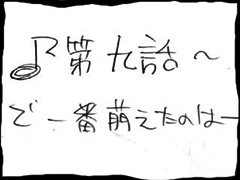 ♪第九話～
で一番萌えたのはー